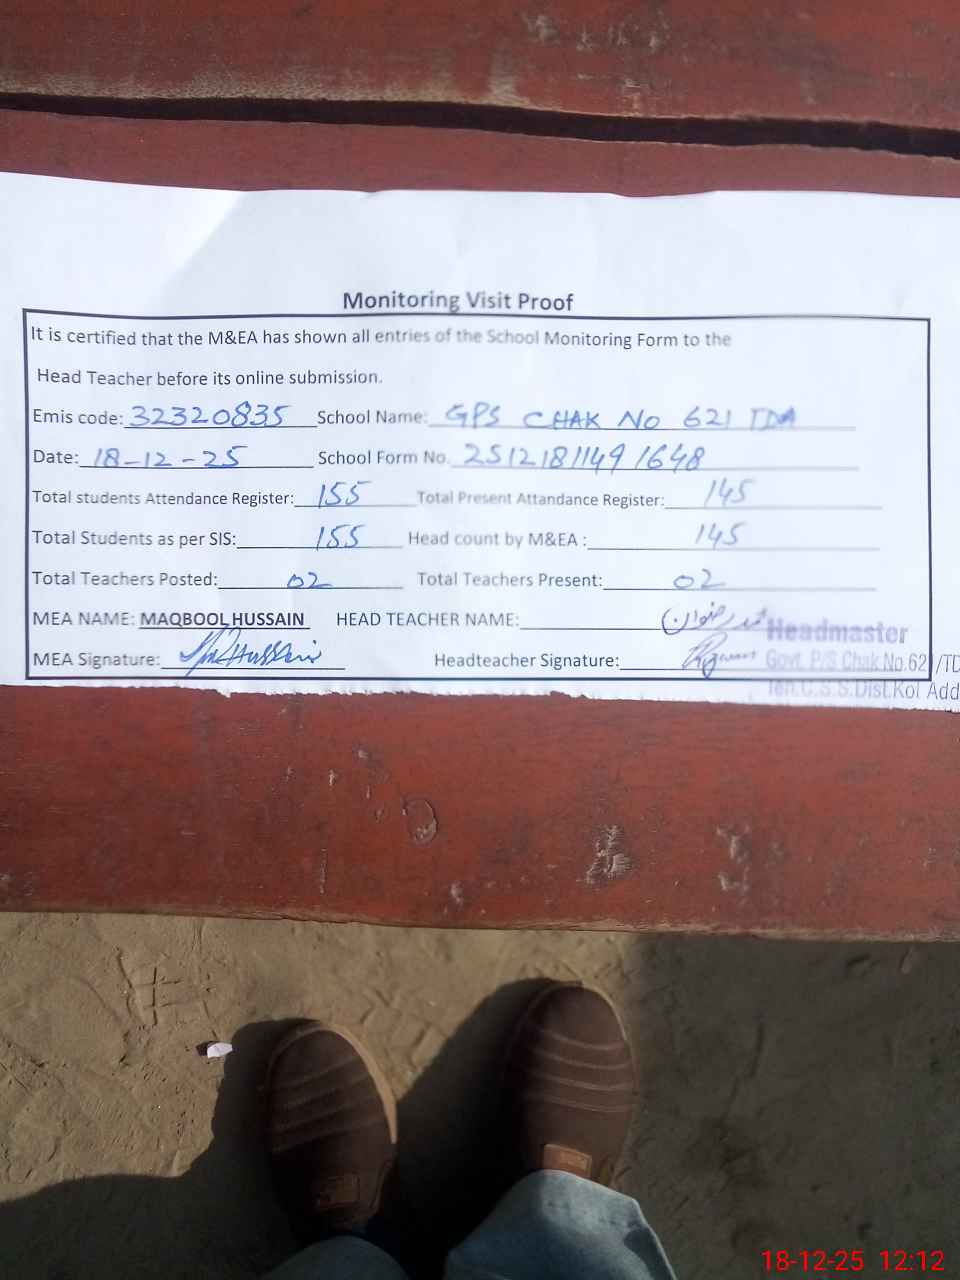 Monitoring Visit Proof
It is certified that the M&EA has shown all entries of the School Monitoring Form to the
Head Teacher before its online submission.
Emis code: 32320835 School Name: GPS CHAK No 621 TDA
Date: 18-12-25 School Form No. 2512181149 1648
Total students Attendance Register: 155 Total Present Attandance Register: 145
Total Students as per SIS: 155 Head count by M&EA : 145
Total Teachers Posted: 02 Total Teachers Present: 02
MEA NAME: MAQBOOL HUSSAIN HEAD TEACHER NAME: محمد رضوان
MEA Signature: Hussain Headteacher Signature:
Headmaster
Govt. P/S Chak No.621/TD
Teh.C.S.S.Dist.Kot Add
18-12-25 12:12